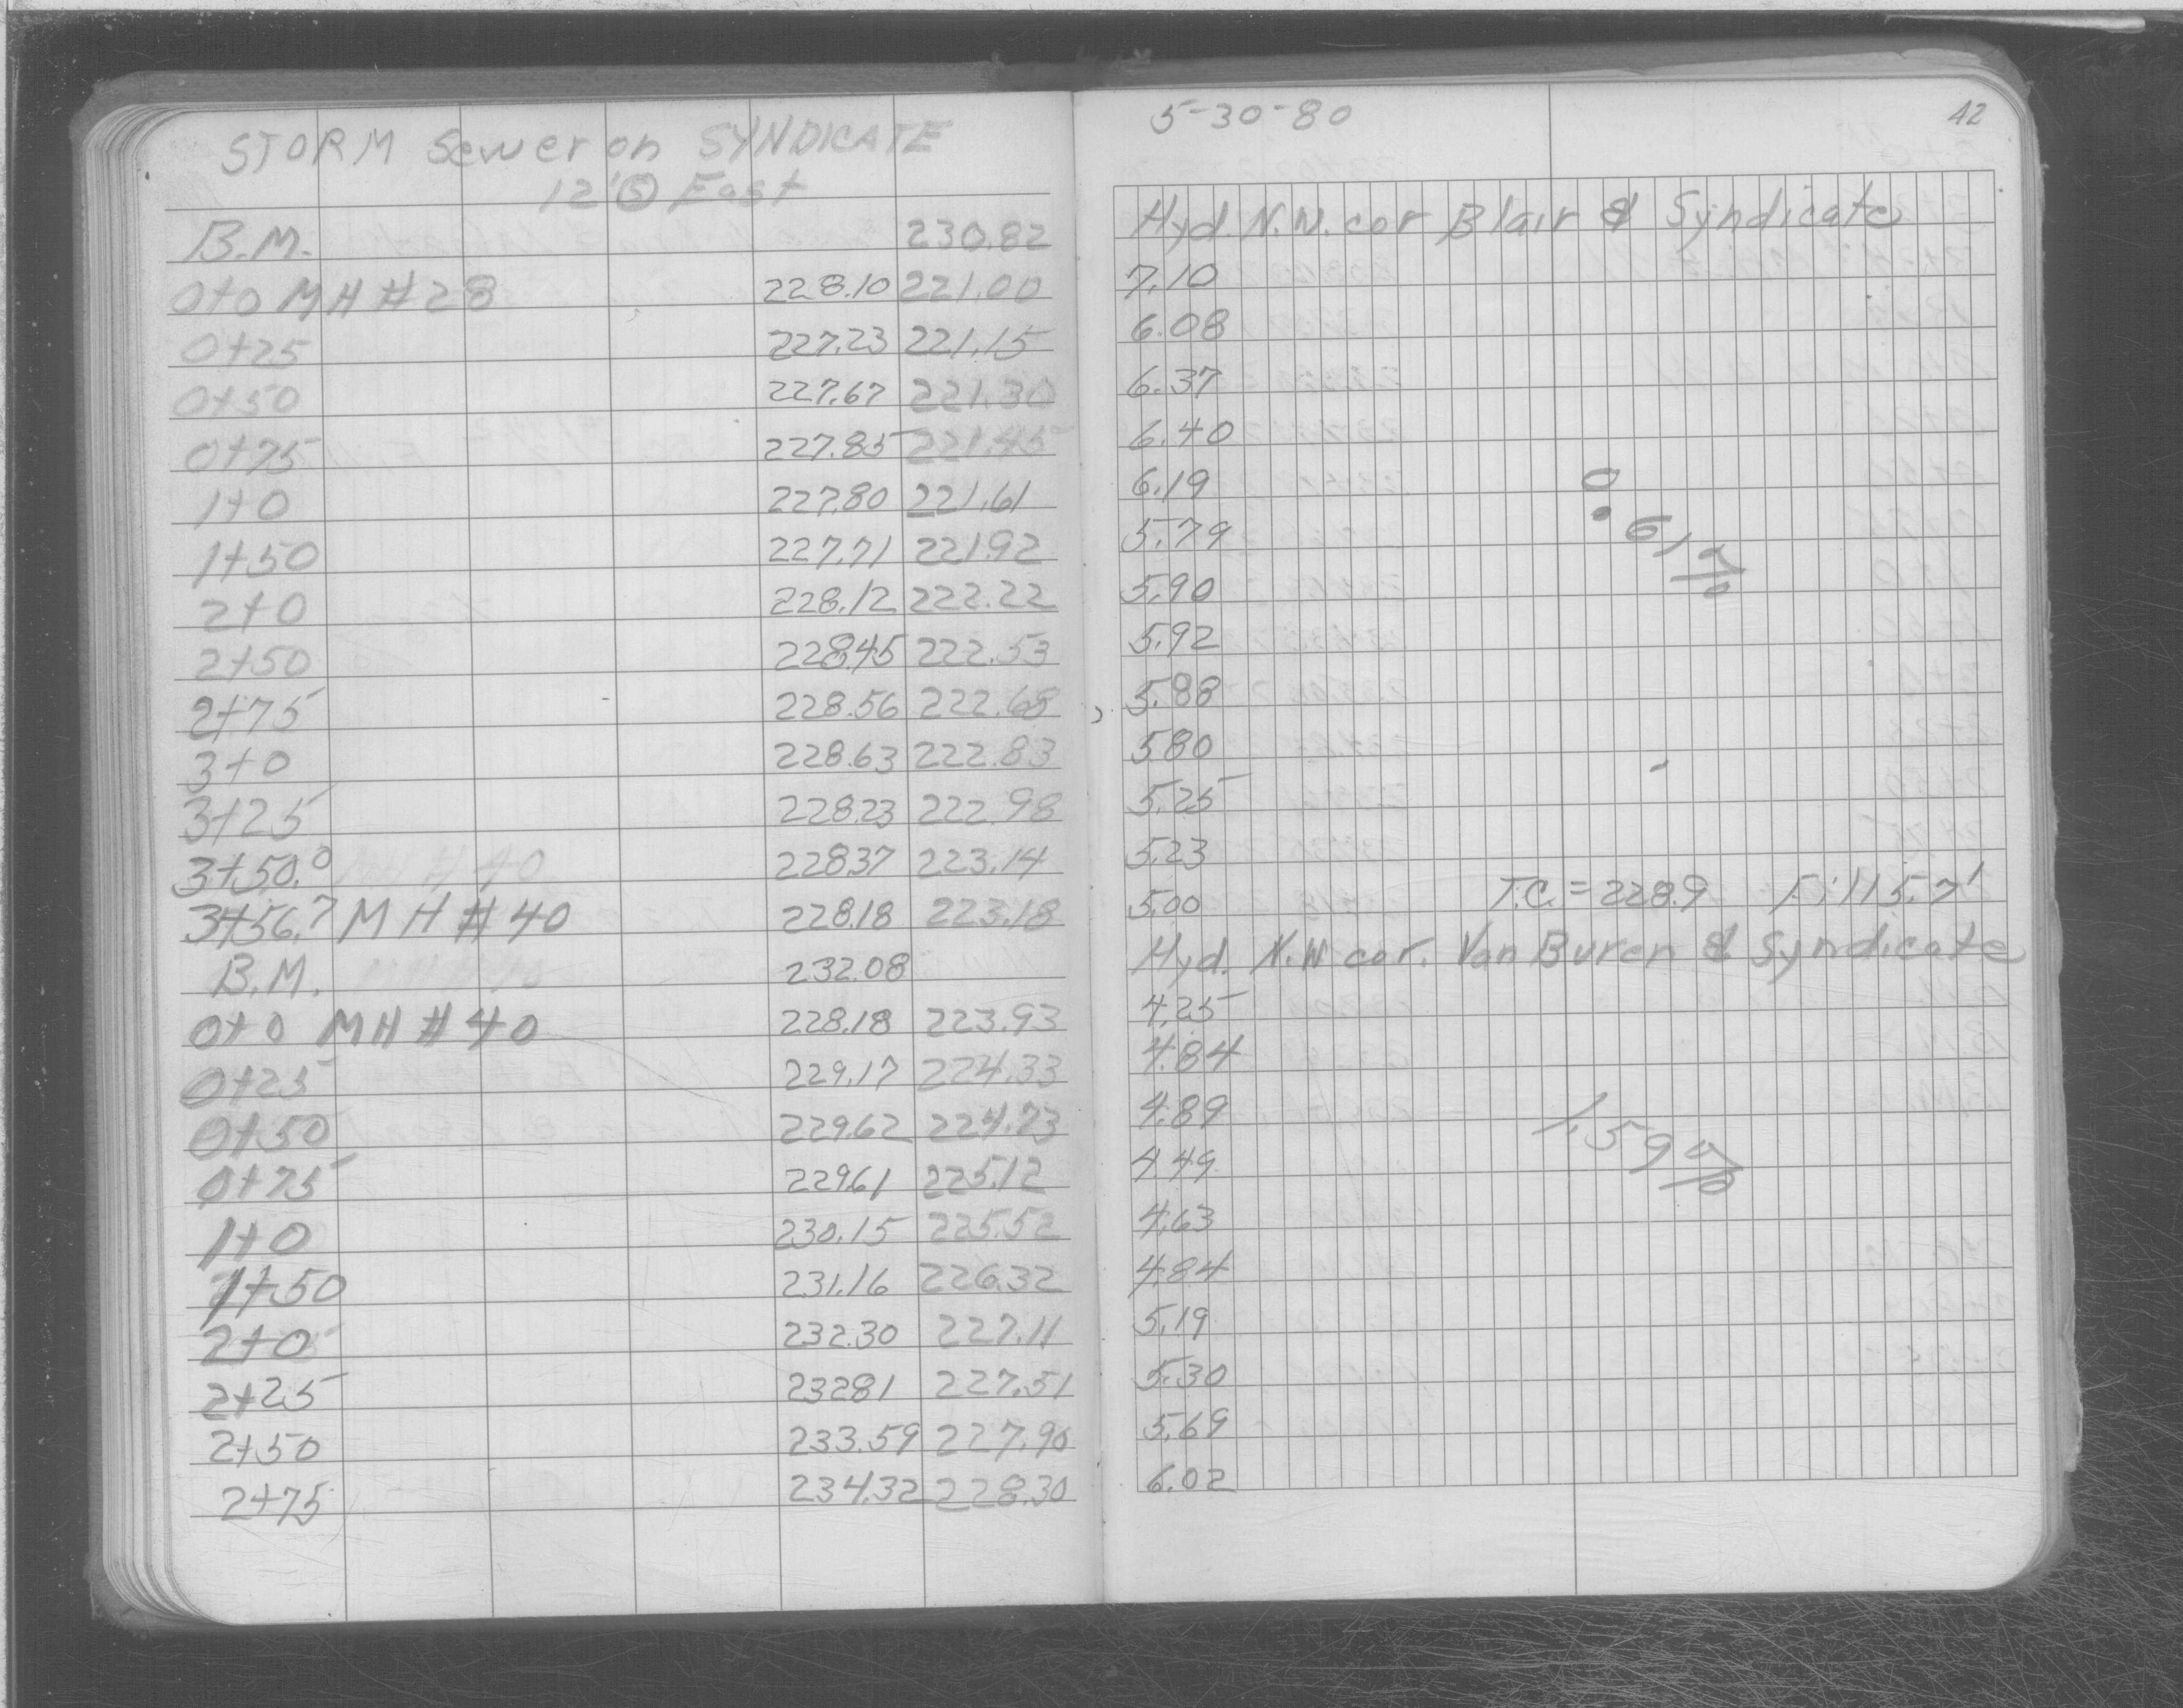 STORM Sewer on SYNDICATE
12' Ⓢ East
B.M. 230.82
0+0 MH #28 228.10 221.00
0+25 227.23 221.15
0+50 227.67 221.30
0+75 227.85 221.45
1+0 227.80 221.61
1+50 227.71 221.92
2+0 228.12 222.22
2+50 228.45 222.53
2+75 228.56 222.68
3+0 228.63 222.83
3+25 228.23 222.98
3+50.0 MH #40 228.37 223.14
3+56.7 MH #40 228.18 223.18
B.M. 232.08
0+0 MH #40 228.18 223.93
0+25 229.17 224.33
0+50 229.62 224.73
0+75 229.61 225.12
1+0 230.15 225.52
1+50 231.16 226.32
2+0 232.30 227.11
2+25 232.81 227.51
2+50 233.59 227.90
2+75 234.32 228.30
5-30-80 42
Hyd. N.W. cor Blair & Syndicate
7.10
6.08
6.37
6.40
6.19
5.79
5.90
5.92
5.88
5.80
5.25
5.23
5.00 T.C. = 228.9 Fill 5.7'
0.61%
Hyd. N.W cor. Van Buren & Syndicate
4.25
4.84
4.89
4.49
4.63
4.84
5.19
5.30
5.69
6.02
1.59%